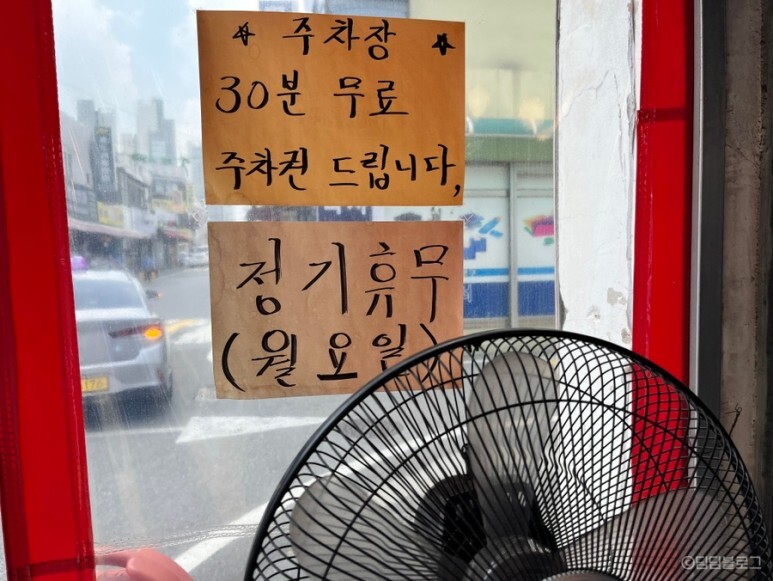 * 주차장 *
30분 무료
주차권 드립니다,
정기휴무
(월요일)
©딤딤블로그